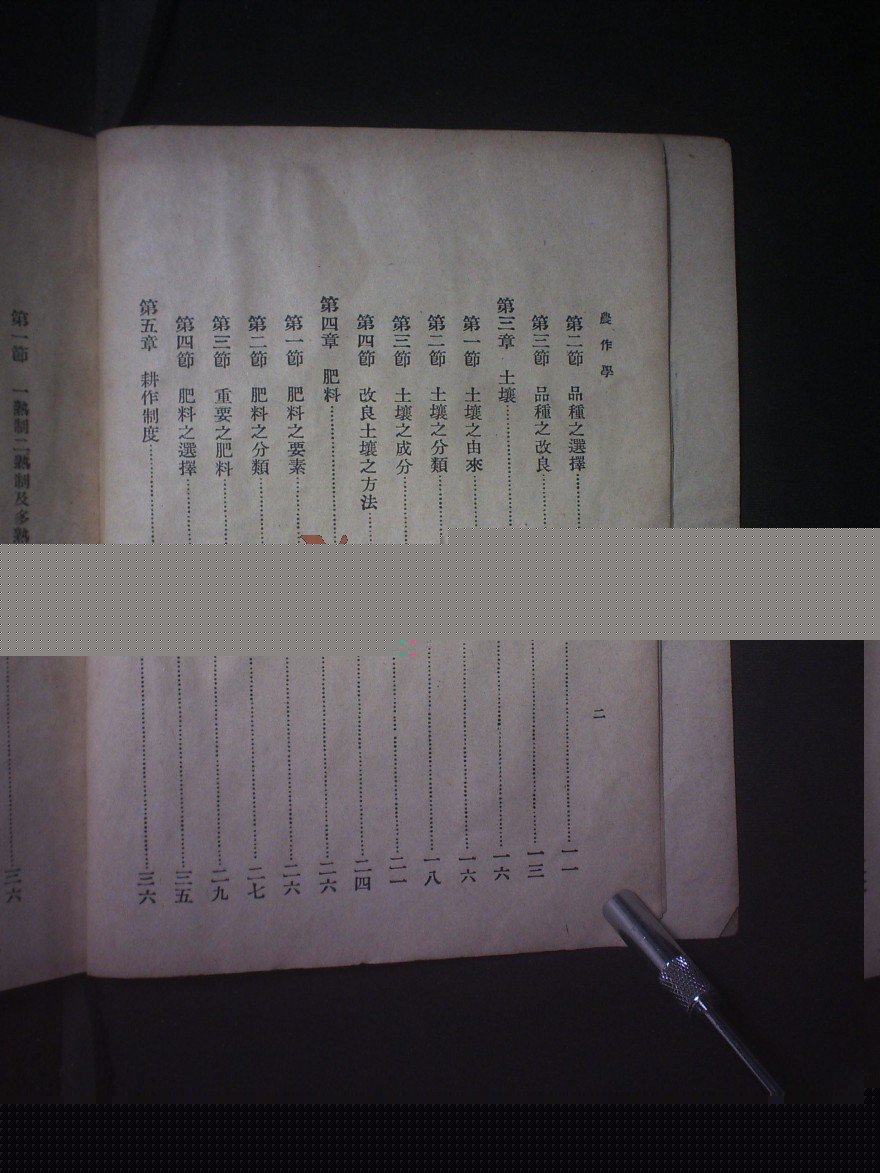 農作學
二
第二節 品種之選擇 一一
第三節 品種之改良 一三
第三章 土壤 一六
第一節 土壤之由來 一六
第二節 土壤之分類 一八
第三節 土壤之成分 二一
第四節 改良土壤之方法 二四
第四章 肥料 二六
第一節 肥料之要素 二六
第二節 肥料之分類 二七
第三節 重要之肥料 二九
第四節 肥料之選擇 三五
第五章 耕作制度 三六
第一節 一熟制二熟制及多熟 三六